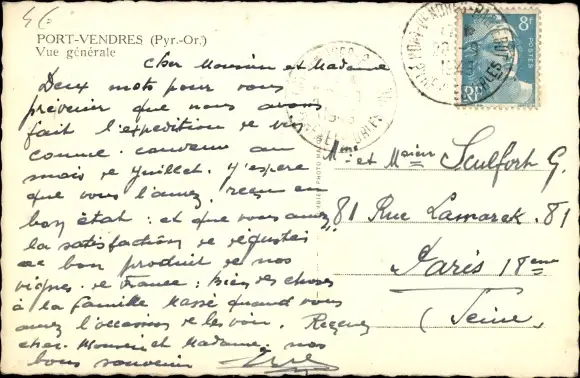 PORT-VENDRES (Pyr.-Or.)
Vue générale
Cher Monsieur et Madame
Deux mots pour vous
prévenir que nous avons
fait l'expedition de vin
comme convenu au
mois de Juillet. J'espere
que vous l'aurez reçu en
bon état : et que vous aurez
la satisfaction de déguster
ce bon produit de nos
vignes de France : Bien des choses
à la famille Massé quand vous
aurez l'occasion de les voir. Recevez
cher Monsieur et Madame nos
bons souvenir
8F
POSTES
RF
Mme et Msieur Sculfort G.
81 Rue Lamarck. 81
Paris 18eme
(Seine)